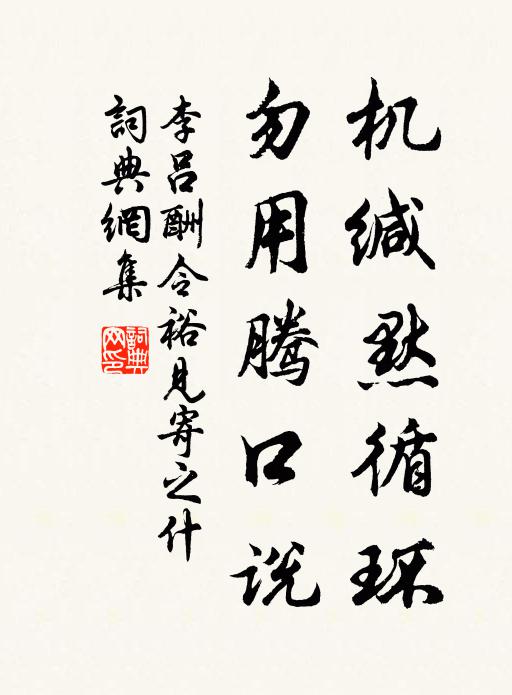 机缄默循环
勿用腾口说
李吕酬令裕见寄之什
詞典網集
詞典网印